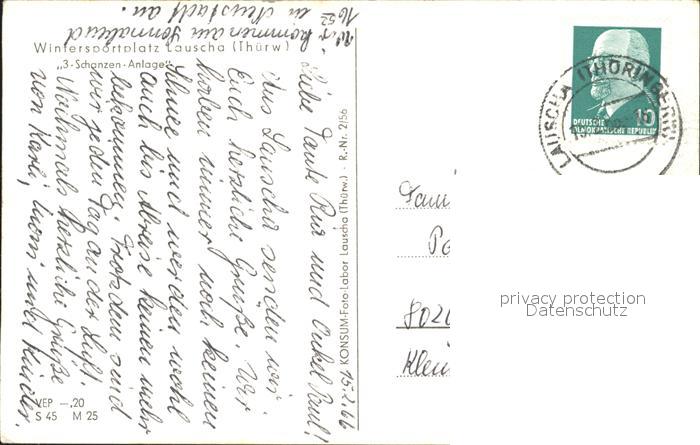 Wir kommen am Sonnabend
16⁵² in Neustadt an.
Wintersportplatz Lauscha (Thürw)
„3-Schanzen-Anlage"
15.2.66
Liebe Tante Ria und Onkel Paul!
Aus Lauscha senden wir
Euch herzliche Grüße. Wir
haben immer noch keinen
Schnee und werden wohl
auch bis Abreise keinen mehr
bekommen. Trotzdem sind
wir jeden Tag an der Luft.
Nochmals herzliche Grüße
von Karli, und Kinder.
VEP —,20
S 45 M 25
KONSUM-Foto-Labor Lauscha (Thürw.) · R.-Nr. 2/56
LAUSCHA (THÜRINGERW)
10
DEUTSCHE
DEMOKRATISCHE REPUBLIK
Fam
802
Klei
privacy protection
Datenschutz